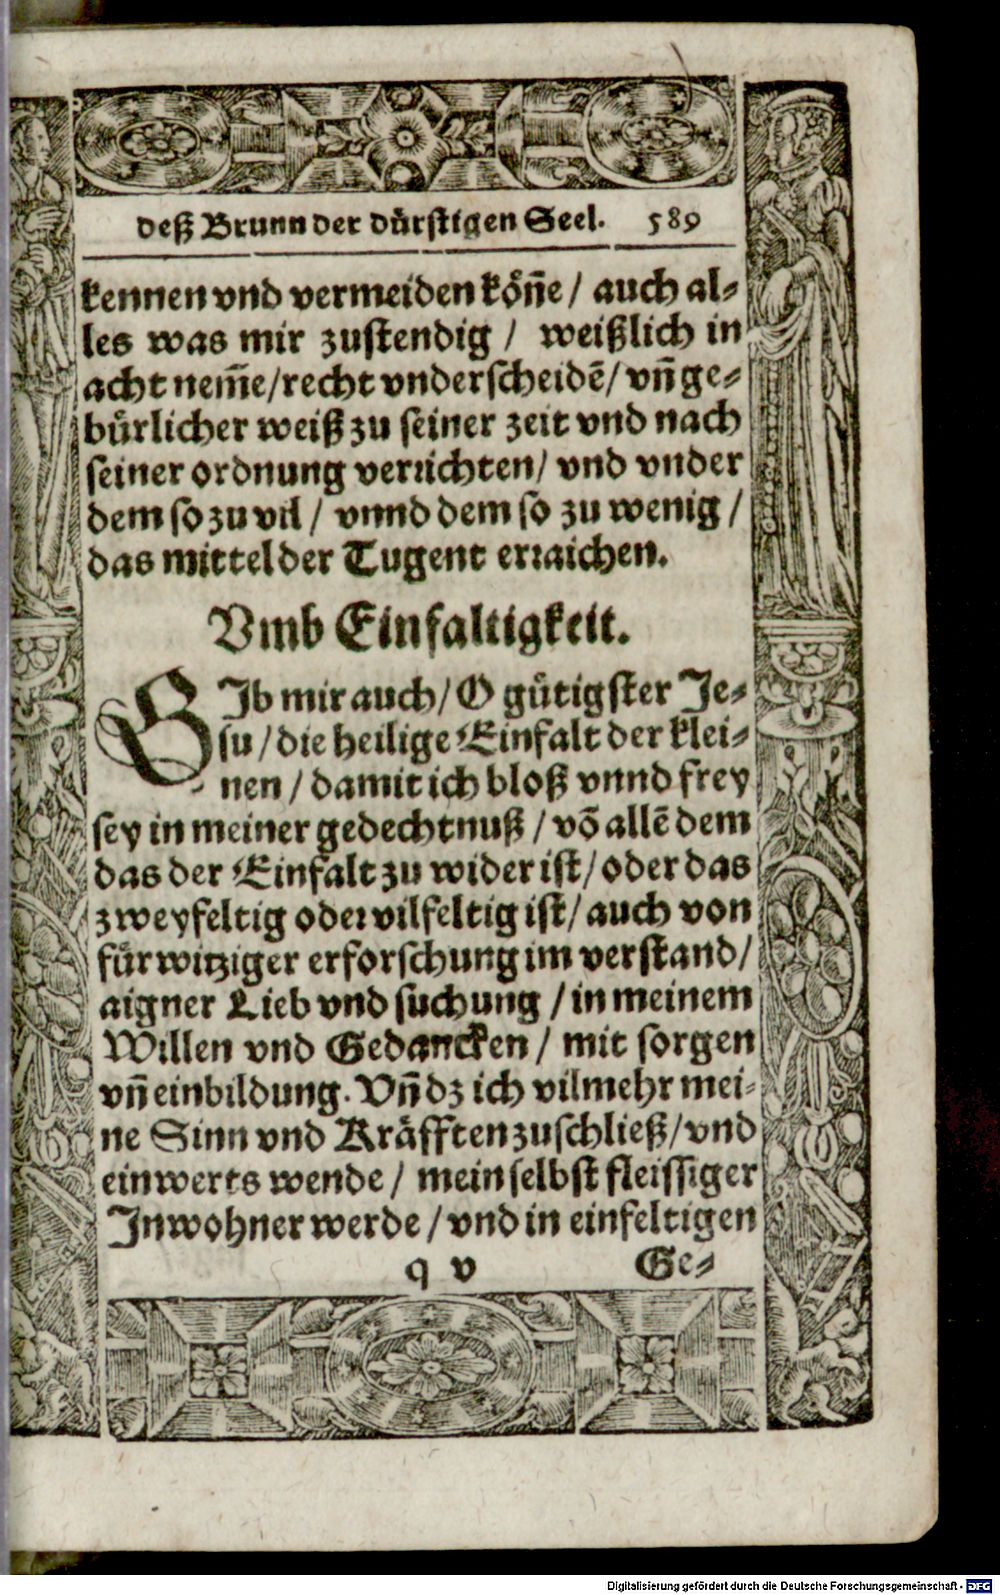 deß Brunn der dürstigen Seel. 589
kennen vnd vermeiden köñe / auch al⸗
les was mir zustendig / weißlich in
acht nem̃e / recht vnderscheidẽ / vñ ge⸗
bürlicher weiß zu seiner zeit vnd nach
seiner ordnung verrichten / vnd vnder
dem so zu vil / vnnd dem so zu wenig /
das mittel der Tugent erraichen.
Vmb Einfaltigkeit.
GIb mir auch / O gütigster Je⸗
su / die heilige Einfalt der klei⸗
nen / damit ich bloß vnnd frey
sey in meiner gedechtnuß / võ allẽ dem
das der Einfalt zu wider ist / oder das
zweyfeltig oder vilfeltig ist / auch von
fürwitziger erforschung im verstand /
aigner Lieb vnd suchung / in meinem
Willen vnd Gedancken / mit sorgen
vñ einbildung. Vñ dz ich vilmehr mei⸗
ne Sinn vnd Kräfften zuschließ / vnd
einwerts wende / mein selbst fleissiger
Inwohner werde / vnd in einfeltigen
q v Ge⸗
Digitalisierung gefördert durch die Deutsche Forschungsgemeinschaft - DFG